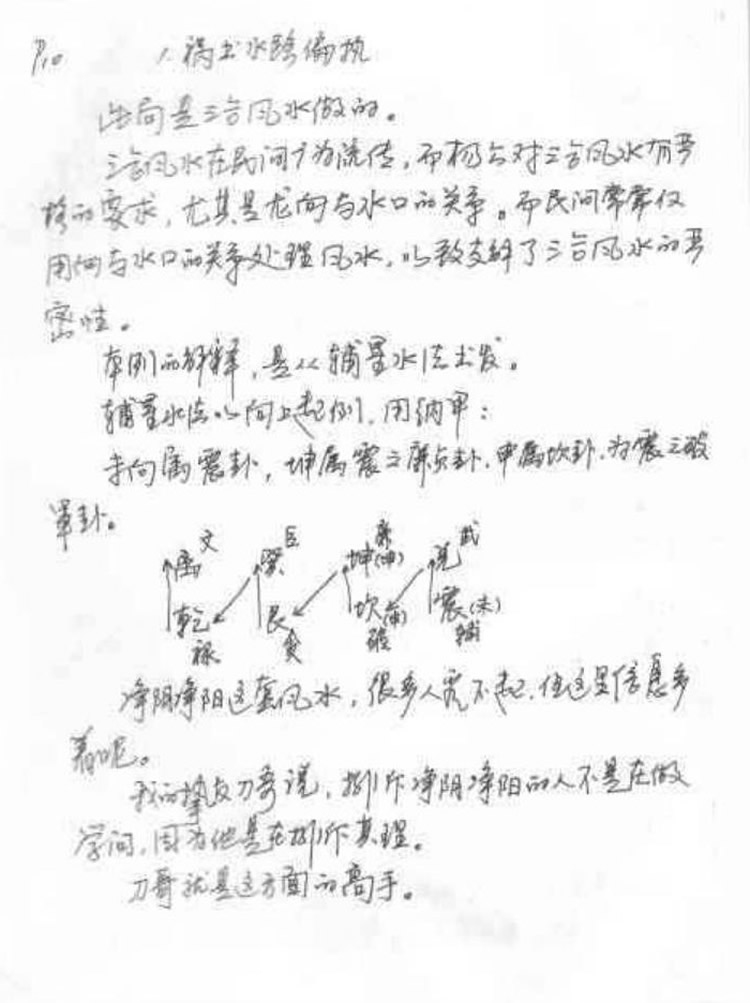 P10 1、祸出水路偏执
此局是三合风水做的。
三合风水在民间广为流传，而杨公对三合风水有严
格的要求，尤其是龙向与水口的关系。而民间常常仅
用向与水口的关系处理风水，以致支解了三合风水的严
密性。
本例的解释，是从辅星水法出发。
辅星水法以向上起例，用纳甲：
未向属震卦，坤属震之廉贞卦，申属坎卦，为震之破
军卦。
离文 巽巨 坤(坤)廉 兑武
乾禄 艮贪 坎(申)破 震(未)辅
净阴净阳这套风水，很多人看不起，但这里信息多
着呢。
我的挚友刀哥说，排斥净阴净阳的人不是在做
学问，因为他是在排斥真理。
刀哥就是这方面的高手。